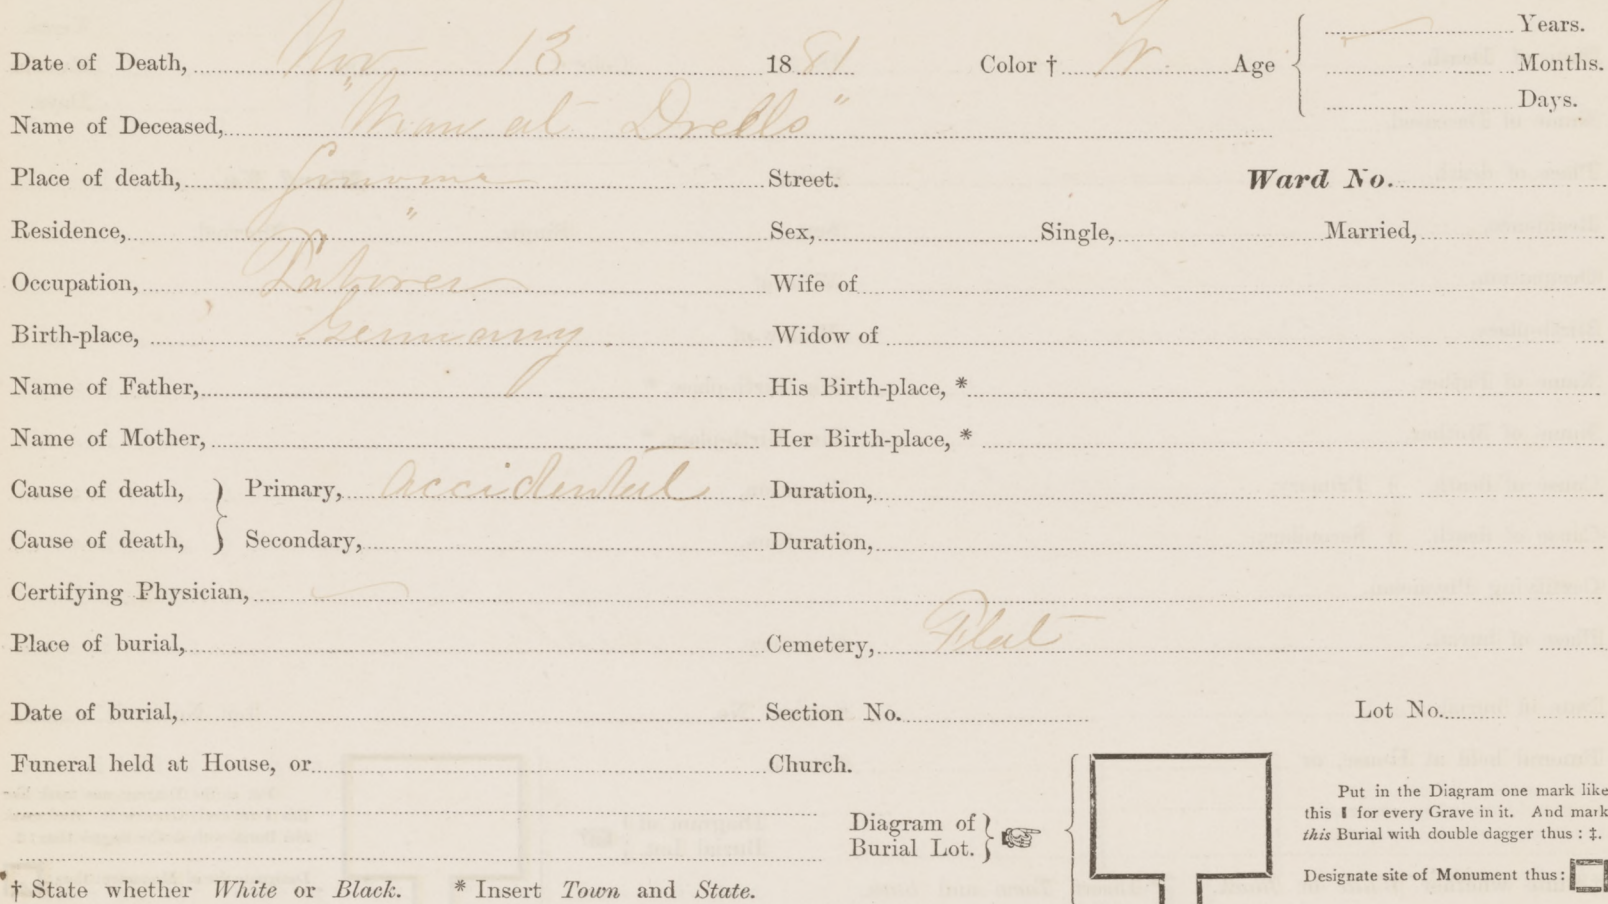 Years.
Date of Death, Nov 13 1881 Color † W. Age Months.
Days.
Name of Deceased, "Man at Drells"
Place of death, Sonoma Street. Ward No.
Residence, " Sex, Single, Married,
Occupation, Laborer Wife of
Birth-place, Germany. Widow of
Name of Father, His Birth-place, *
Name of Mother, Her Birth-place, *
Cause of death, } Primary, accidental Duration,
Cause of death, } Secondary, Duration,
Certifying Physician,
Place of burial, Cemetery, Plat
Date of burial, Section No. Lot No.
Funeral held at House, or Church.
Diagram of Burial Lot. }
Put in the Diagram one mark like
this ▮ for every Grave in it. And mark
this Burial with double dagger thus : ‡.
Designate site of Monument thus :
† State whether White or Black. * Insert Town and State.